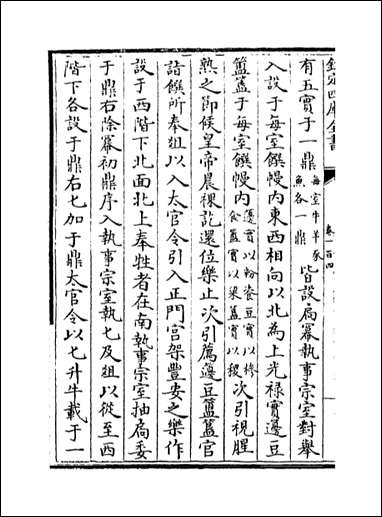 欽定四庫全書
卷一百四
有五實于一鼎每室牛羊豕魚各一鼎皆設扃羃執事宗室對舉
入設于每室饌幔内東西相向以北為上光禄實籩豆
簠簋于每室饌幔内籩實以粉餈豆實以糝食簠實以粱簋實以稷次引視腥
熟之節候皇帝晨祼訖還位樂止次引薦籩豆簠簋官
詣饌所奉俎以入太官令引入正門宫架豐安之樂作
設于西階下北面北上奉牲者在南執事宗室抽扃委
于鼎右除羃初鼎序入執事宗室執匕及俎以從至西
階下各設于鼎右匕加于鼎太官令以匕升牛載于一